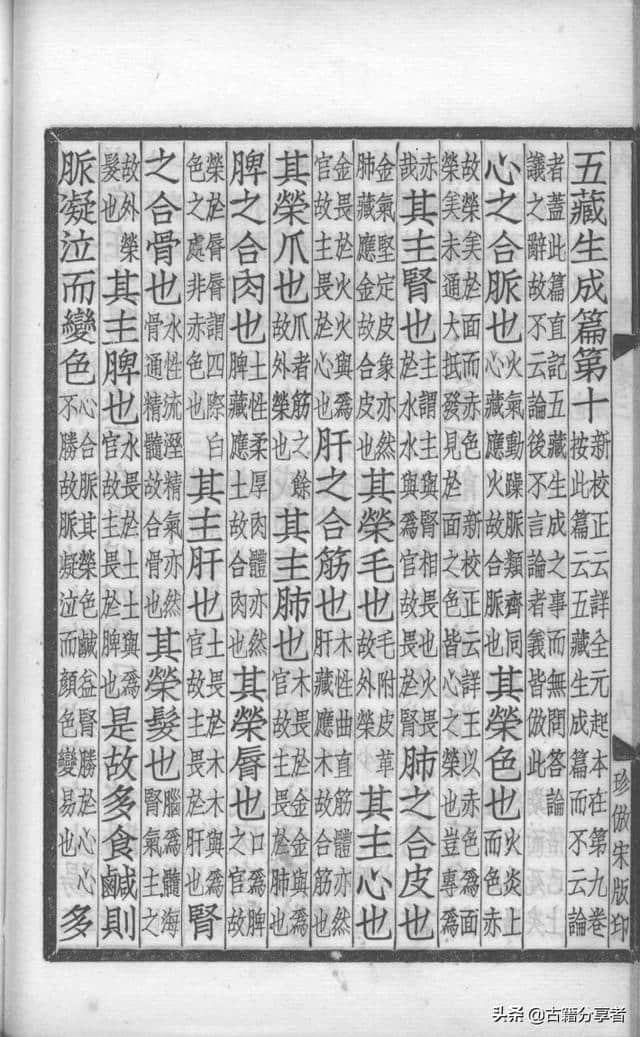 珍倣宋版印
五藏生成篇第十新校正云詳全元起本在第九卷按此篇云五藏生成篇而不云論
者蓋此篇直記五藏生成之事而無問答論議之辭故不云論後不言論者義皆倣此
心之合脈也火氣動躁脈類齊同心藏應火故合脈也其榮色也火炎上而色赤
故榮美於面而赤色新校正云詳王以赤色爲面榮美未通大抵發見於面之色皆心之榮也豈專爲
赤哉其主腎也主謂主與腎相畏也火畏於水水與爲官故主畏於腎肺之合皮也
金氣堅定皮象亦然肺藏應金故合皮也其榮毛也毛附皮革故外榮其主心也
金畏於火火與爲官故主畏於心也肝之合筋也木性曲直筋體亦然肝藏應木故合筋也
其榮爪也爪者筋之餘故外榮也其主肺也木畏於金金與爲官故主畏於肺也
脾之合肉也土性柔厚肉體亦然脾藏應土故合肉也其榮脣也口爲脾之官故
榮於脣脣謂四際白色之處非赤色也其主肝也土畏於木木與爲官故主畏於肝也腎
之合骨也水性流溼精氣亦然骨通精髓故合骨也其榮髮也腦爲髓海腎氣主之
故外榮髮也其主脾也水畏於土土與爲官故主畏於脾也是故多食鹹則
脈凝泣而變色心合脈其榮色鹹益腎勝於心心不勝故脈凝泣而顏色變易也多
头条 @古籍分享者